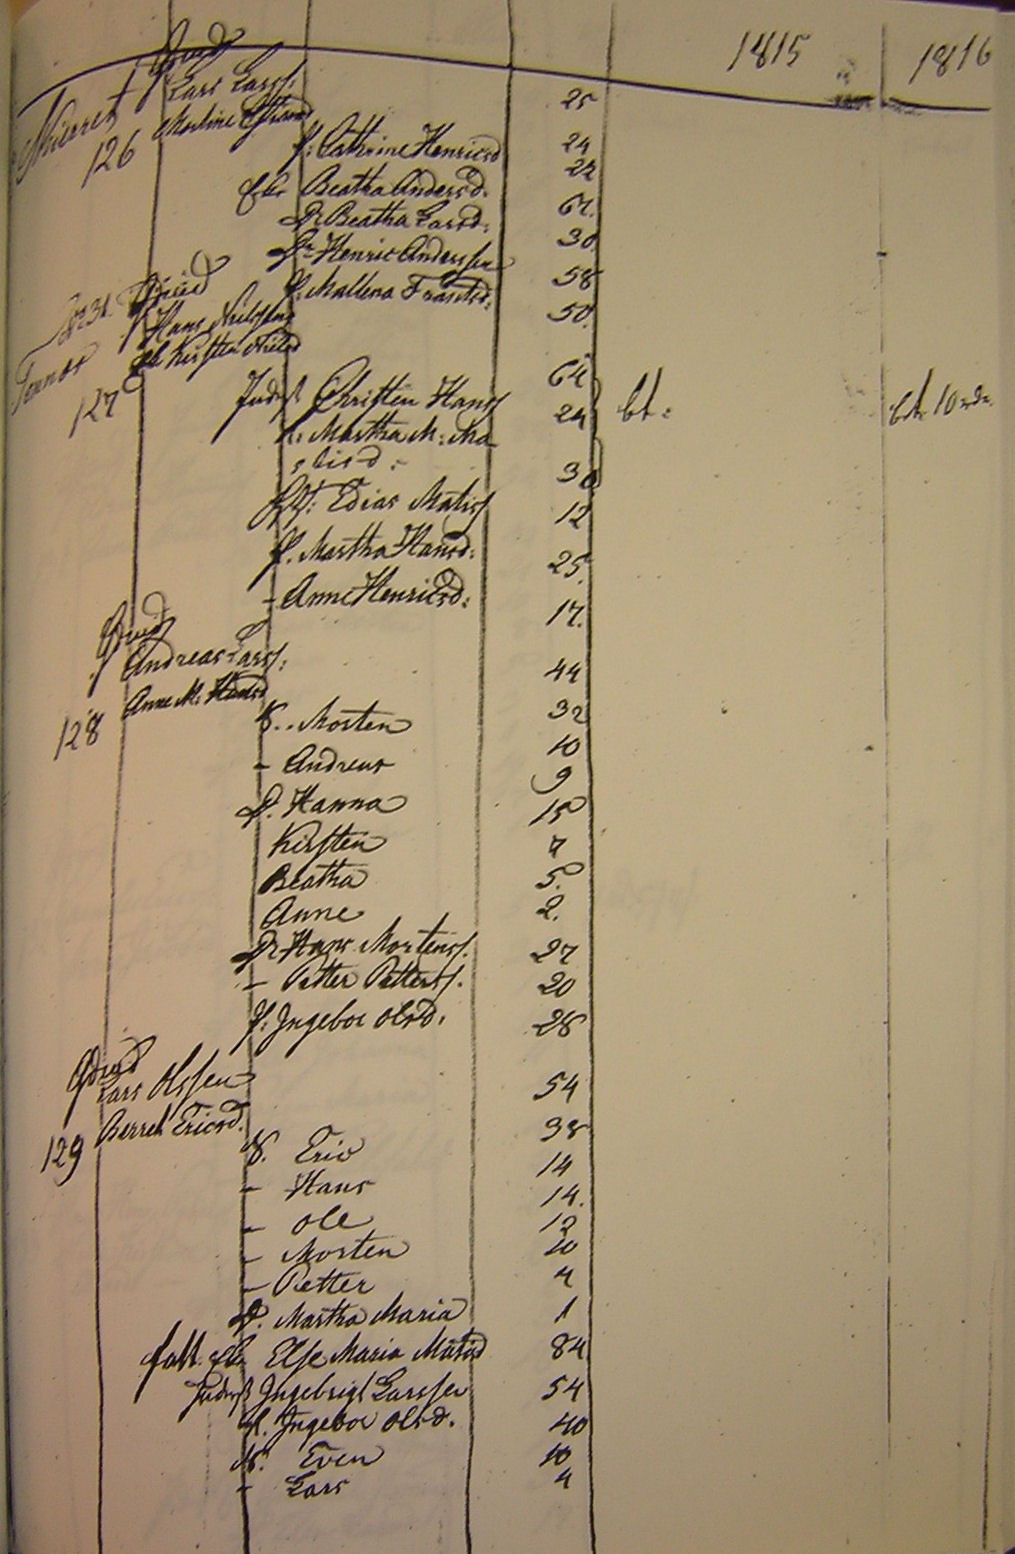 1815 1816
Lars Larss.
126
25
P. Cathrine Henricsd 24
Beatha Andersd. 22
Dr Beatha Larsd. 61.
Dr Henric Anderssen 30
P. Mallena 58
50.
Hans Nielssen
Kirsten Nielsd
127
64
Inderst Christen Hanss 24 bt: bt. 10
K: Martha M: Ma-
thisd. 30
Edias Matiss 12
P. Martha Hansd: 25.
- Anne Henricsd: 17.
Gmd
Andreas Larss: 44
Anne M. Hansd 32
128
S. Morten 10
- Andreas 9
D. Hanna 15
Kirsten 7
Beatha 5.
Anne 2.
Dr Hans Mortenss. 27
- Petter Petterss. 20
P. Ingebor Olsd. 28
Gmd
Lars Olssen 54
Berret Ericsd. 38
129
S. Eric 14
- Hans 14.
- Ole 12
- Morten 10
- Petter 4
D. Martha Maria 1
fatt. Else Maria Matisd 84
Inderst Ingebrigt Larssen 54
K. Ingebor Olsd. 40
S. Even 10
- Lars 4